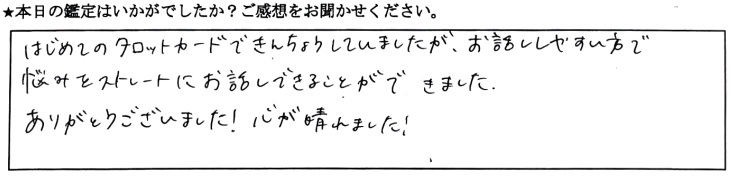 ★本日の鑑定はいかがでしたか？ご感想をお聞かせください。
はじめてのタロットカードできんちょうしていましたが、お話ししやすい方で
悩みをストレートにお話しできることができました.
ありがとうございました！心が晴れました！